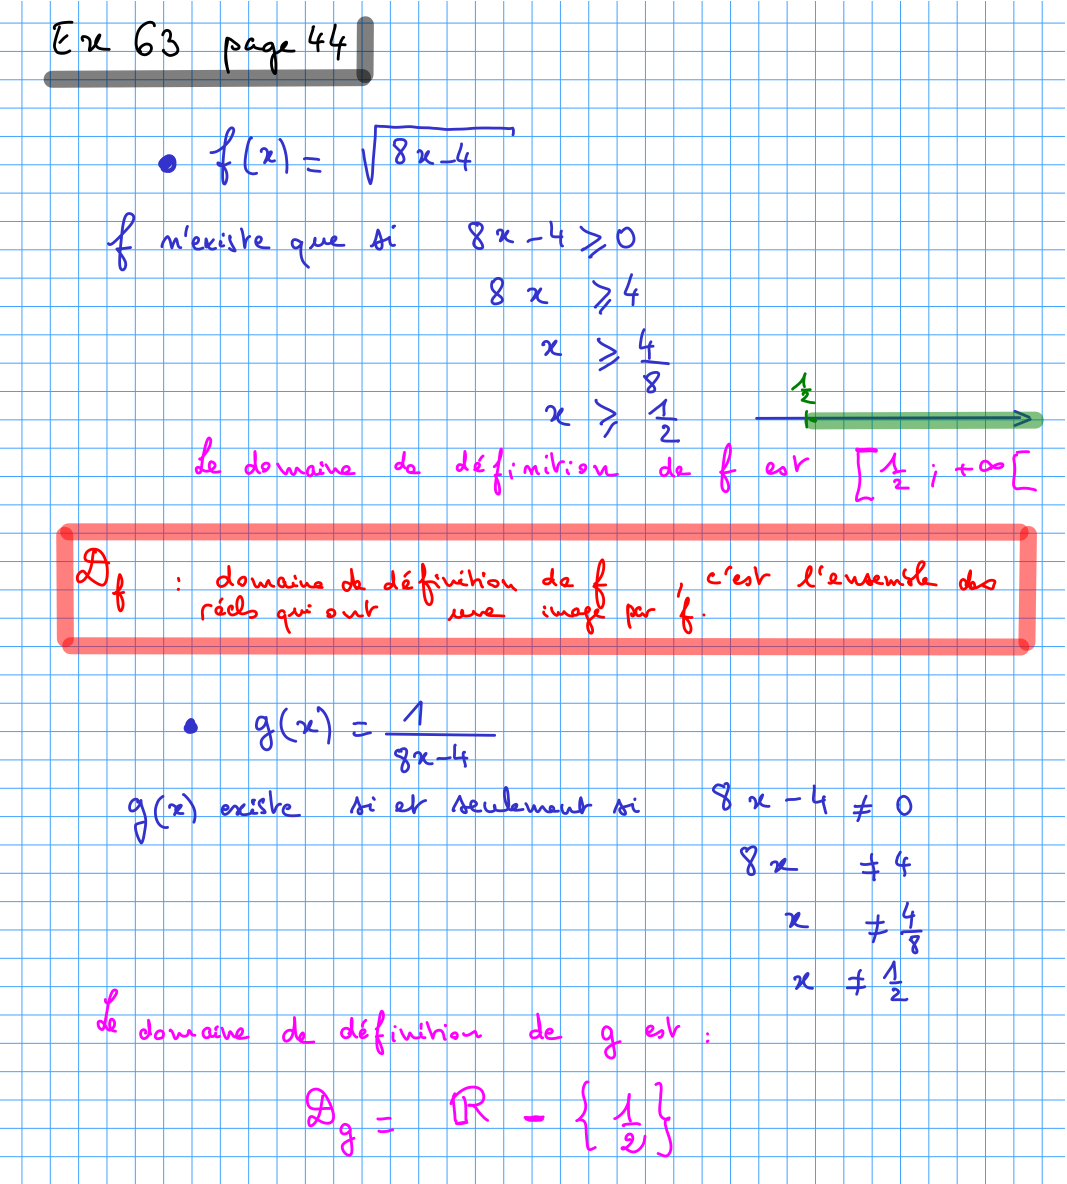 Ex 63 page 44
• f(x) = √(8x-4)
f n'existe que si 8x-4 ⩾ 0
8x ⩾ 4
x ⩾ 4/8
1/2
x ⩾ 1/2
Le domaine de définition de f est [1/2 ; +∞[
D_f : domaine de définition de f, c'est l'ensemble des
réels qui ont une image par f.
• g(x) = 1/(8x-4)
g(x) existe si et seulement si 8x-4 ≠ 0
8x ≠ 4
x ≠ 4/8
x ≠ 1/2
Le domaine de définition de g est :
D_g = ℝ - {1/2}